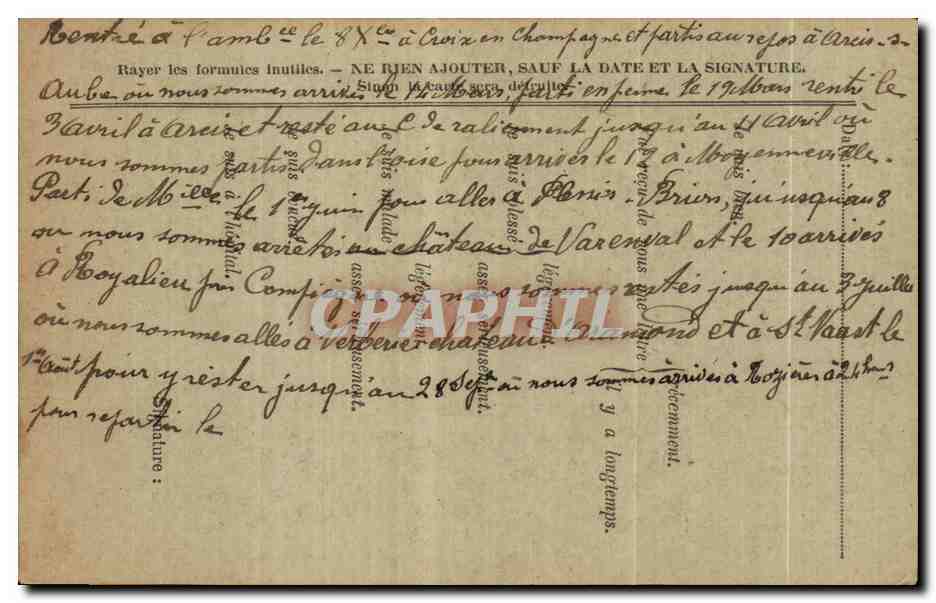 Rentré à l'amb^ce le 8 X^bre à Croix en Champagne et partis au repos à Arcis-s-
Rayer les formules inutiles. — NE RIEN AJOUTER, SAUF LA DATE ET LA SIGNATURE.
Sinon la carte sera détruite.
Aube où nous sommes arrivés le 14 Mars, parti en perme le 19 Mars rentré le
3 avril à Arcis et resté au C de raliement jusqu'au 11 Avril où
nous sommes partis dans l'oise pour arriver le 12 à Moyenneville.
Parti de M^ille le 1^er juin pour aller à Plessis-Brion, qu'jusqu'au 8
ou nous sommes arrêtés au château de Varenval et le 10 arrivés
à Royalieu près Compiègne où nous sommes restés jusqu'au 3 juillet
où nous sommes allés à Verberie chateau d'Aramond et à St Vaast le
1^er Août pour y rester jusqu'au 28 Sept où nous sommes arrivés à Rozières à 24 h^res
pour repartir le
Date :
Je vais bien.
J'ai reçu de vous une lettre
récemment.
il y a longtemps.
Je suis blessé
légèrement.
assez sérieusement.
Je suis malade
légèrement.
assez sérieusement.
Je suis évacué.
Je suis à l'hôpital.
Signature :
CPAPHIL